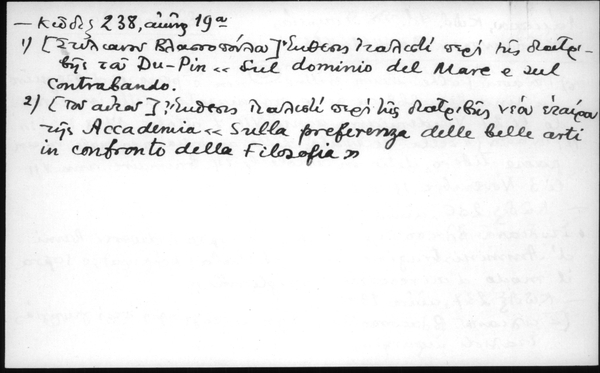 — Κώδιξ 238, αἰών 19ος
1) [Στυλιανοῦ Βλασσοπούλου] Ἔκθεσις Ἰταλιστί περί τῆς διατρι-
βῆς τοῦ Du-Pin «Sul dominio del Mare e sul
contrabando.
2) [Τοῦ αὐτοῦ] Ἔκθεσις Ἰταλιστί περί τῆς διατριβῆς νέου ἑταίρου
τῆς Accademia «Sulla preferenza delle belle arti
in confronto della Filosofia»